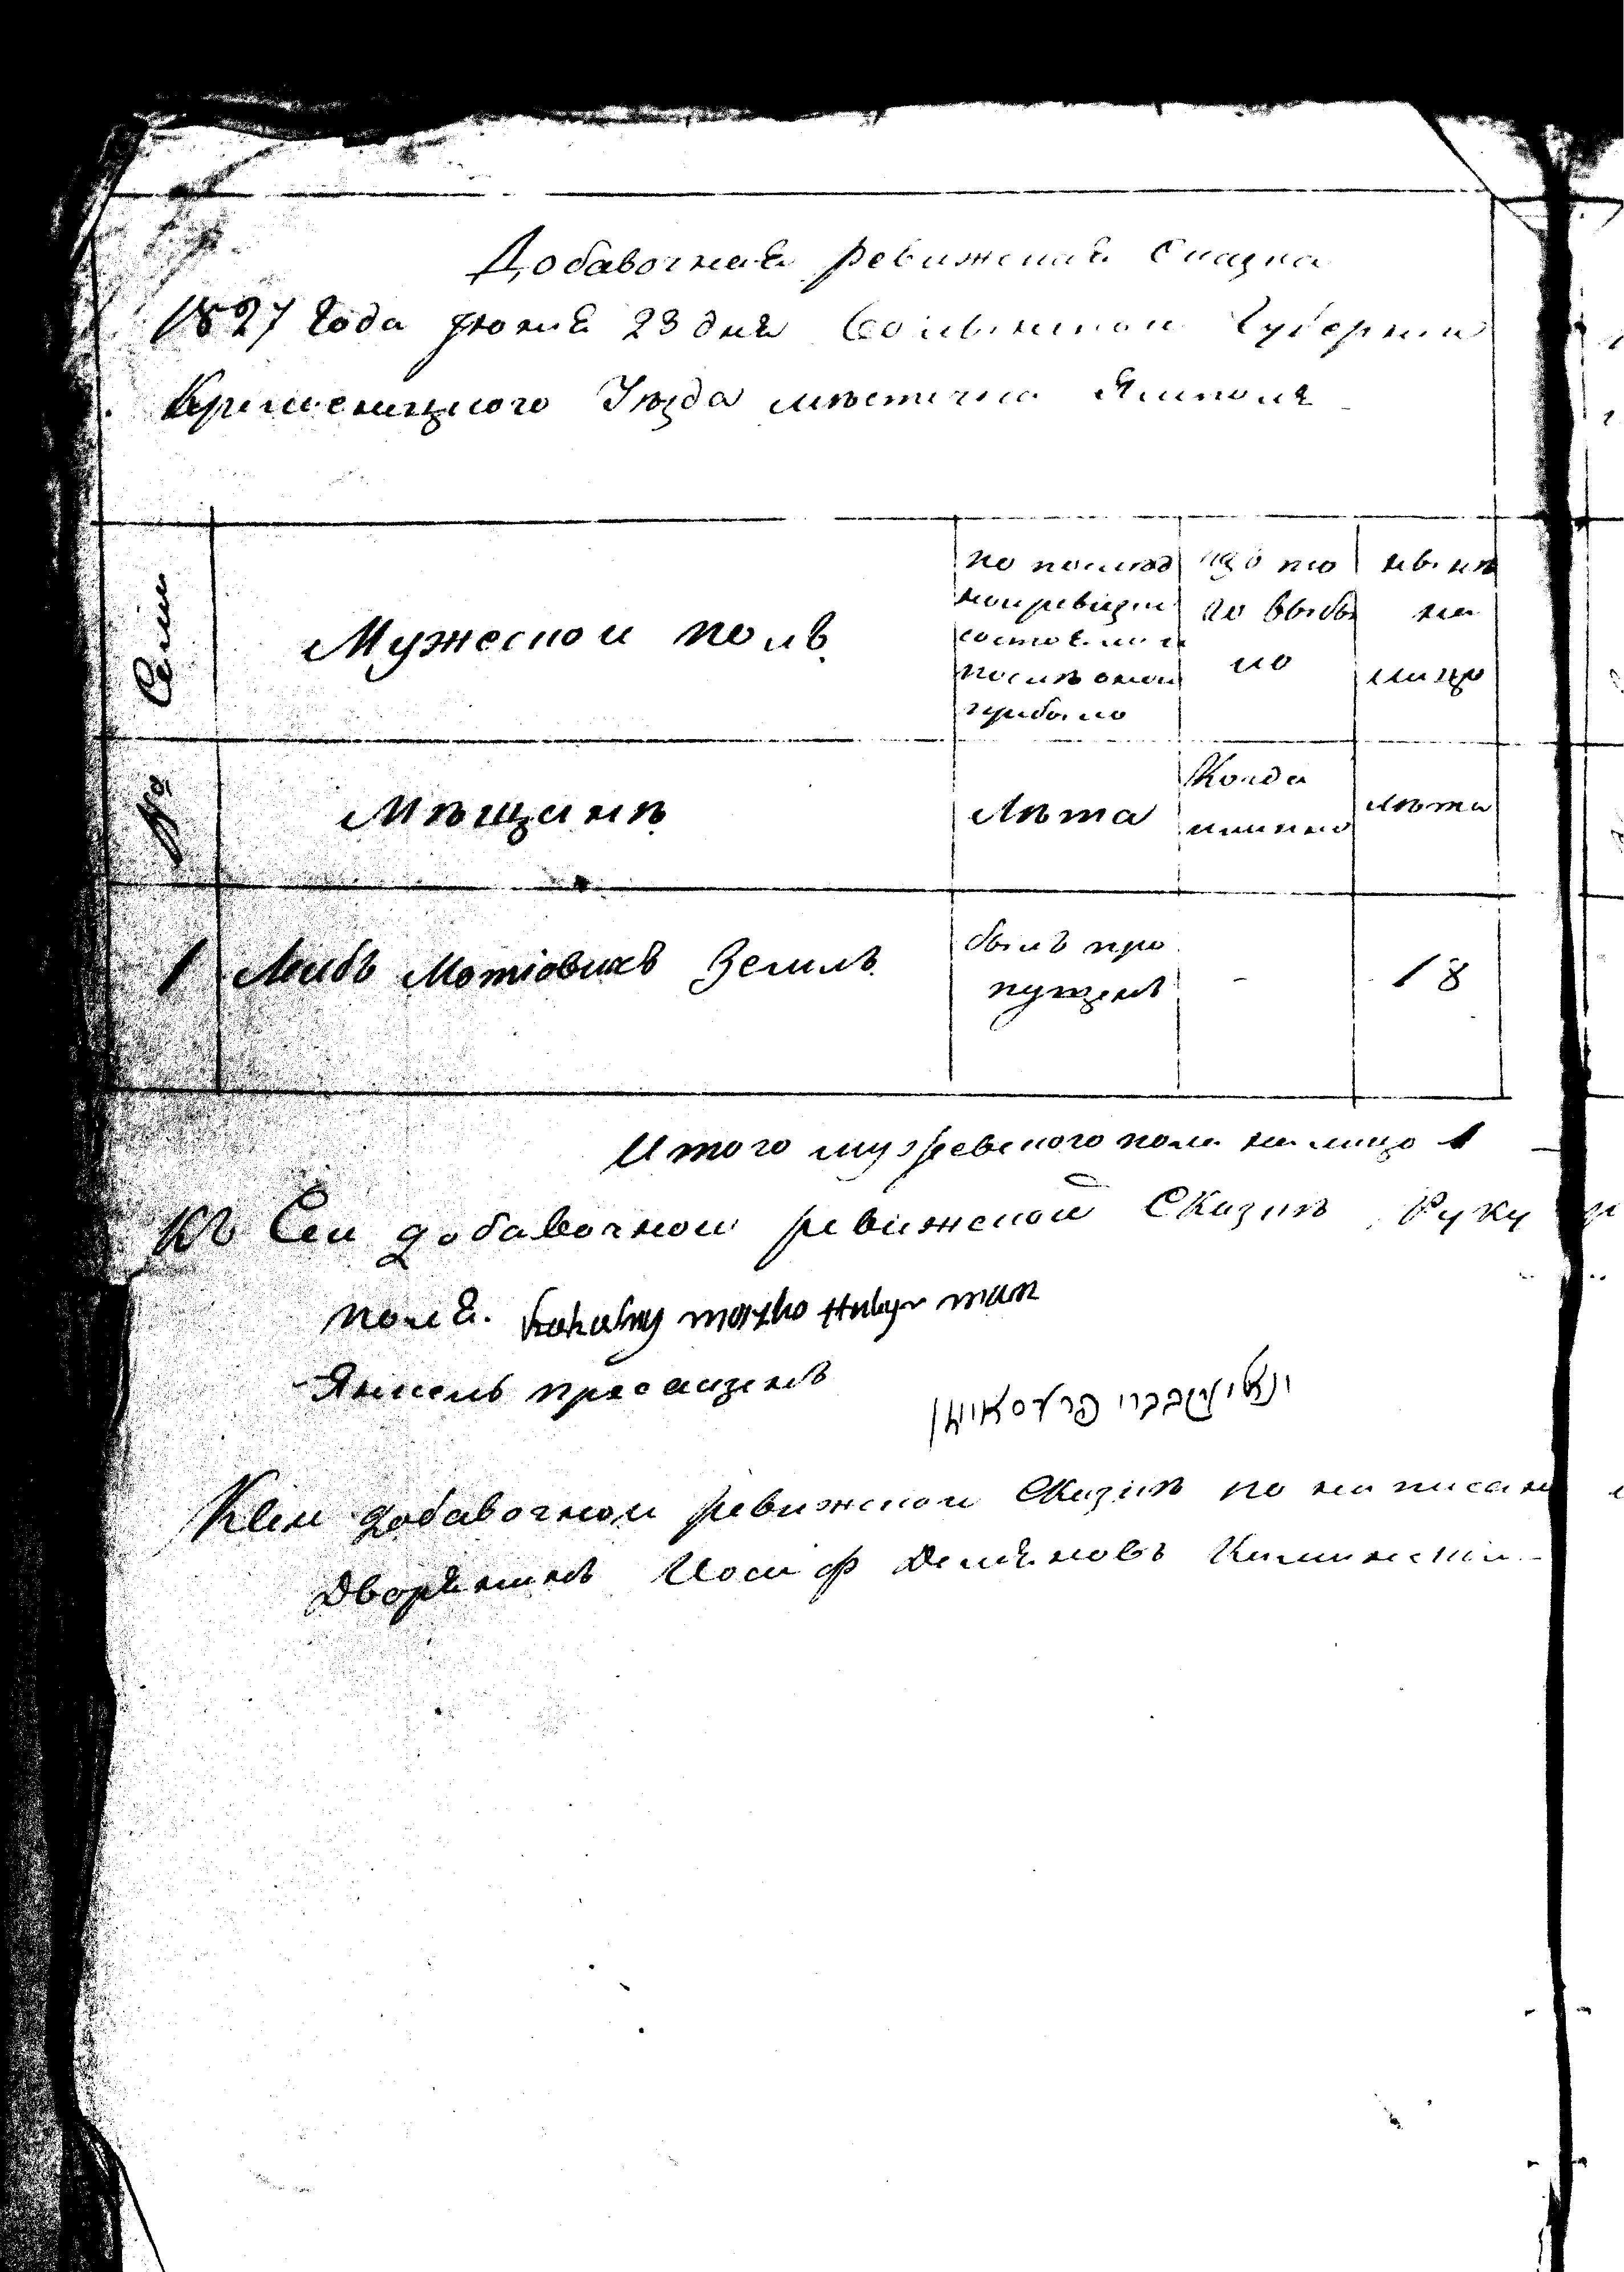 Добавочная ревижская сказка
1827 Года Июня 23 дня Волынской Губернии
Кременецкого Уезда местечка Ямполя
Семи
№
Мужеской полъ
по послѣд
ней ревизіи
состояло и
послѣ оной
прибыло
изъ то
го выбы
ло
нынѣ
на
лицо
Мѣщанѣ
Лѣта
Когда
имянно
лѣта
1 Лейбъ Мотіовичъ Зейгель
былъ про
пущенъ
-
18
Итого мужеского пола на лицо 1
Къ Сей добавочной ревижской Сказкѣ Руку
Кагальny
Янкель
פרעסאיזען
К сей добавочной ревижской Сказкѣ по написанї
Дворянинъ Иосиф Демяновъ